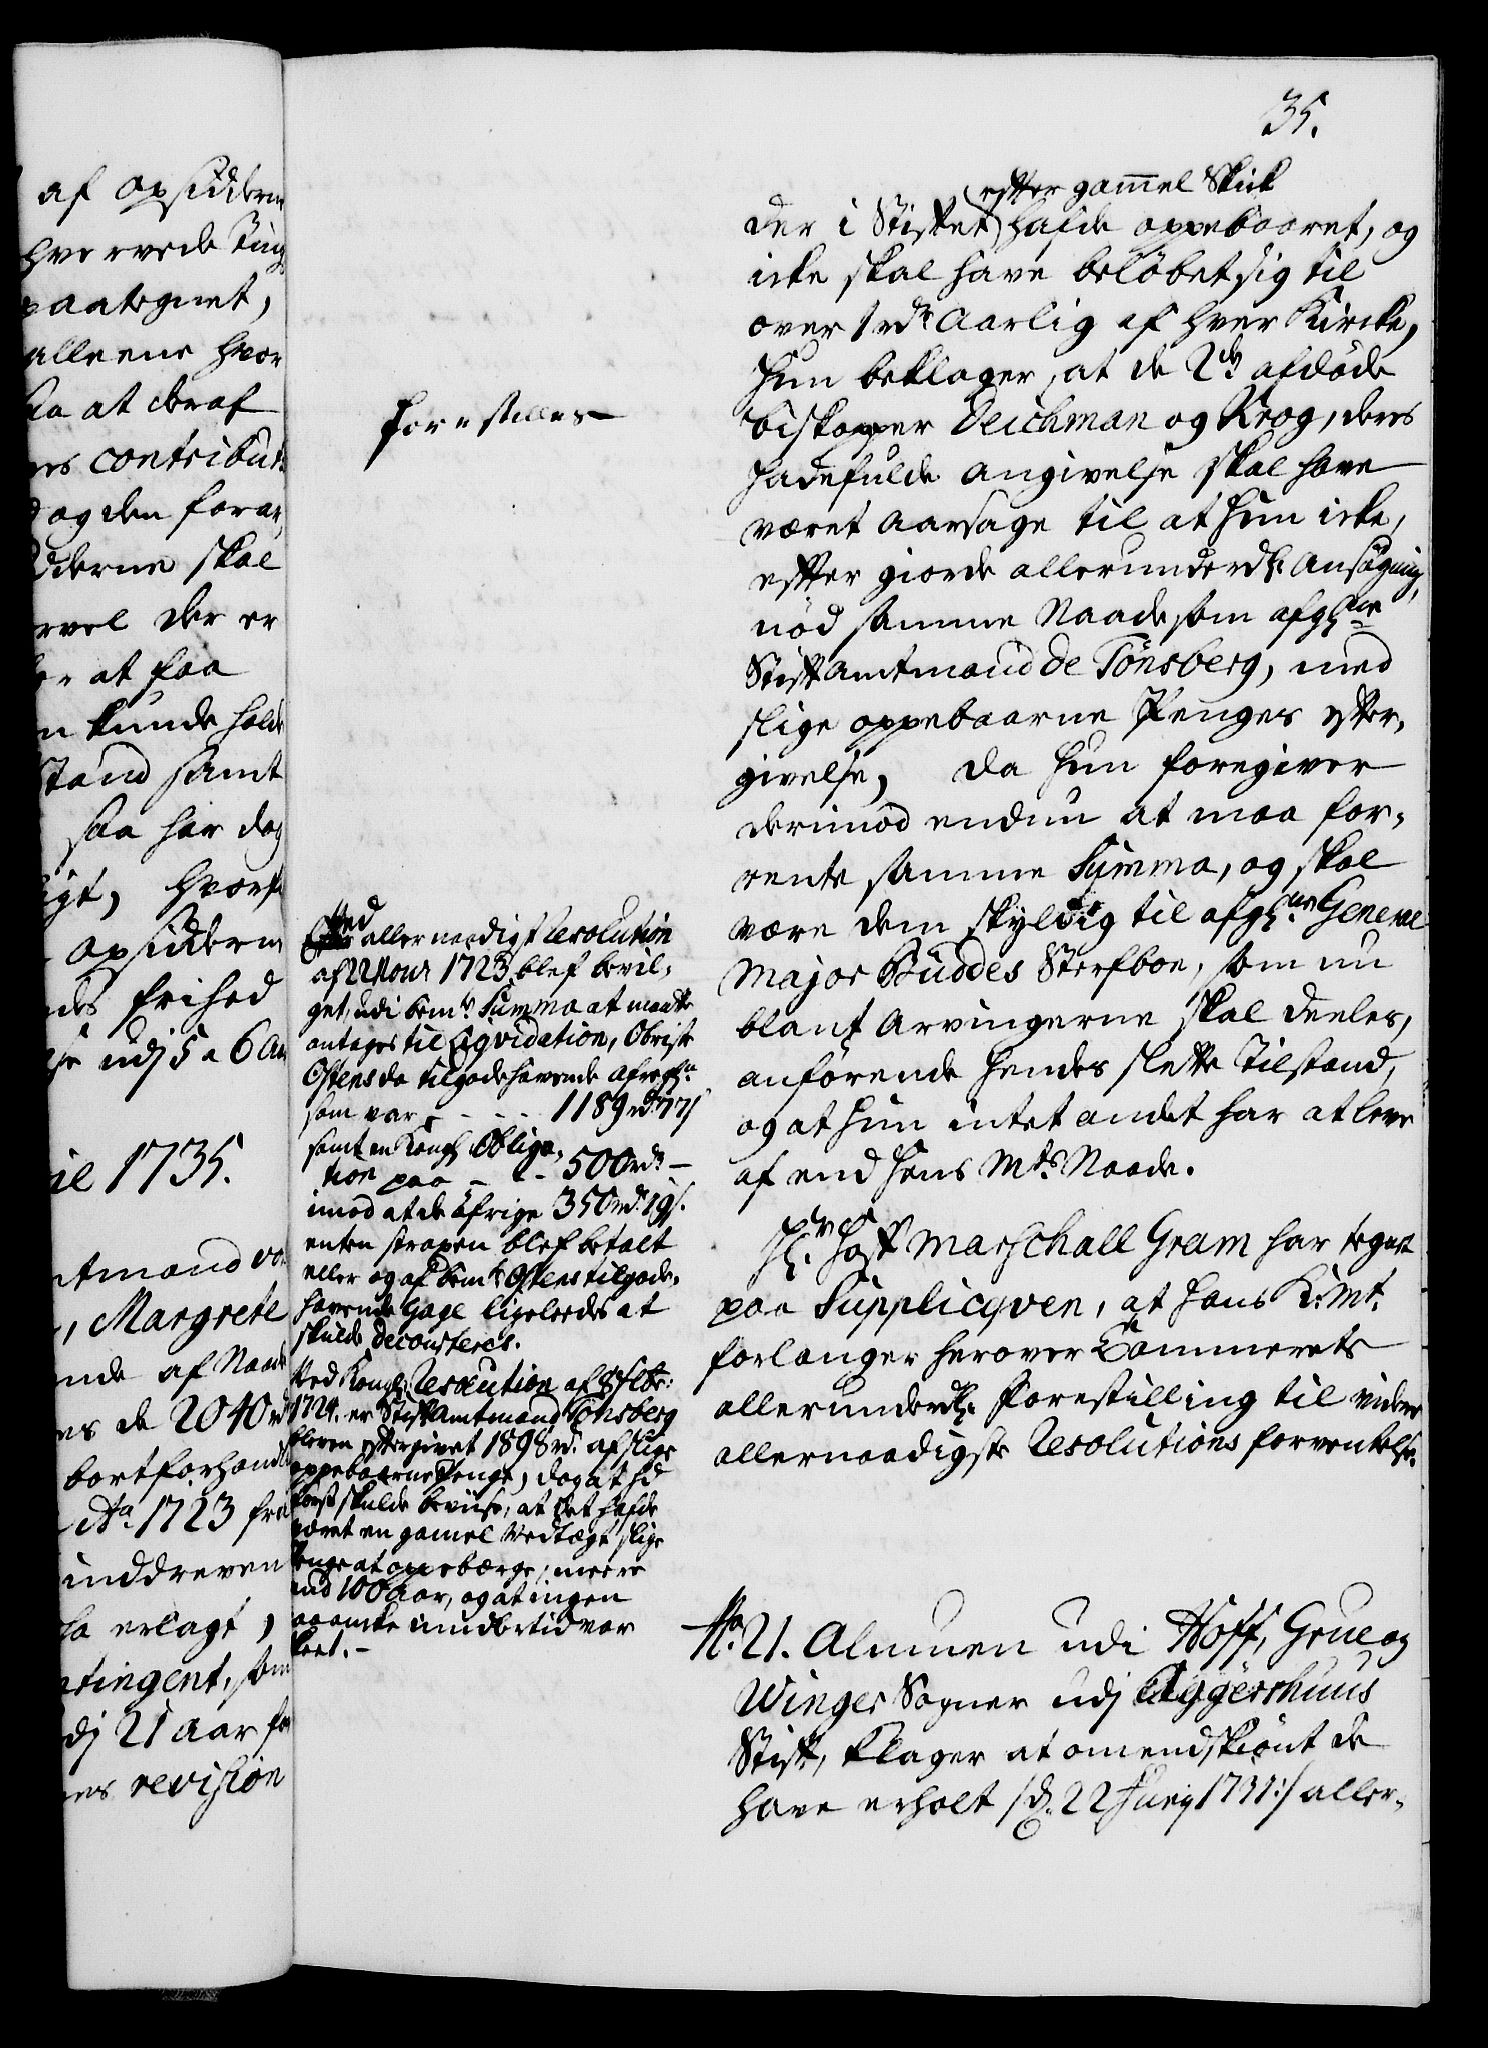 35.
af opsidderne
hvervede Ting
paategnet,
alleene hvor
saa at deraf
contribut:
og den foraar,
dderne skal
vel der er
at faa
kunde holde
stand samt
saa har dog
hvorfor
opsiddern
frihed
udj 5 a 6 Aar
1735.
Amtmand
Margrete
ende af Naade
de 2040 rd
bortforhandl
Ao. 1723 fra
inddreven
erlagt,
contingent, som
udj 21 aar
revision
forestilles
Ved allernaadigst Resolution
af 22 Nour 1723 blef bevil,
get, udi bemte Summa at maatte
antages til Liqvidation, Obriste
Ostens da tilgodehavende afregn:
som var - - - 1189 rd 77 s
samt en Kongl Obliga,
tion paa - - - 500 rdr -
imod at de öfrige 350 rd 19 s.
enten strapen blef betalt
eller og af bemte Ostens tilgode,
havende Gage ligeleedes at
skulde decourteres.
Ved Kongl: Resolution af 8 7br:
1724. er StiftAmtmand Tönsberg
bleven eftergivet 1898 rd. af slige
oppebaarne Penge, dog at hd
först skulde beviise, at det hafde
været en gamel Vedtægt slige
Penge at oppebærge, meere
end 100 Aar, og at ingen
paaancke imidlertid var
skeet. -
efter gammel Skik
der i Stiftet hafde oppebaaret, og
icke skal have belöbet sig til
over 1 rdr Aarlig af hver Kircke,
Hun beklager, at de 2de afdöde
biskopper Deichman og Krog, deres
hadefulde angivelse skal have
været Aarsage til at hun icke,
efter giorde allerunderd: Ansögning,
nöd samme Naade som afgl:ne
StiftAmtmand de Tönsberg, med
slige oppebaarne Penges efter,
givelse, da hun foregiver
derimod endnu at maa for,
rente samme Summa, og skal
være dem skyldig til afgl:ne General
Major Büddes Sterfboe, som nu
blant Arvingerne skal deeles,
anförende hendes slette Tilstand,
og at hun intet andet har at leve
af end Hans Mts Naade.
Hl: Hoff Marschall Gram har tegnet
paa Supplicqven, at Hans K: Mt.
forlanger herover Cammerets
allerunderd: Forestilling til videre
allernaadigste Resolutions forventelse.
No. 21. Almuen udi Hoff, Grue og
Winger Sogner udj Aggershuus
Stift, klager at omendskiönt de
have erholt /: d. 22 Junij 1731:/ aller,